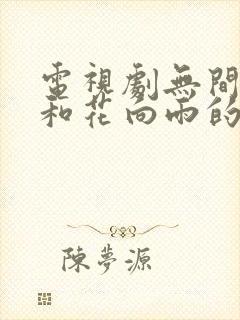 電視劇無間
和花向雨的
陳夢源